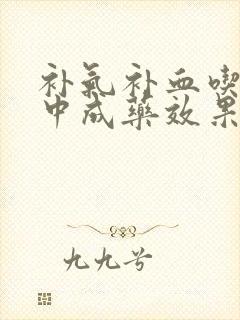 补气补血喫
中成藥效果
九九兮